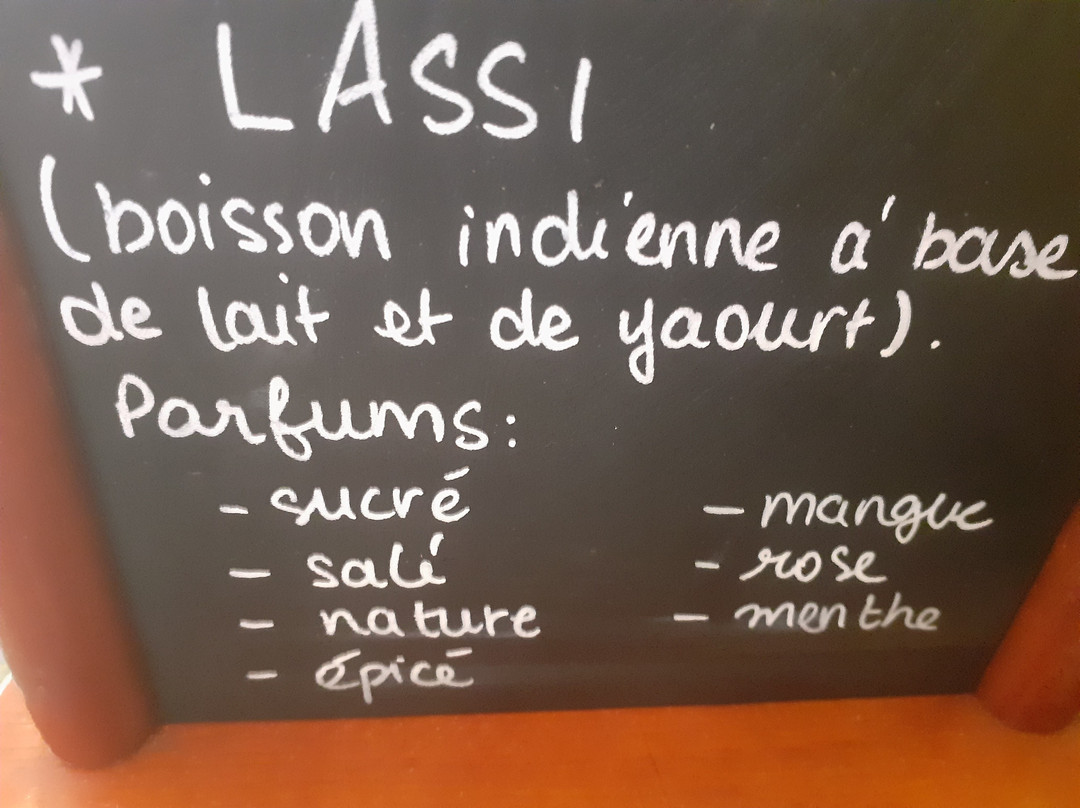 * LASSI
(boisson indienne à base
de lait et de yaourt).
Parfums:
- sucré
- salé
- nature
- épicé
- mangue
- rose
- menthe